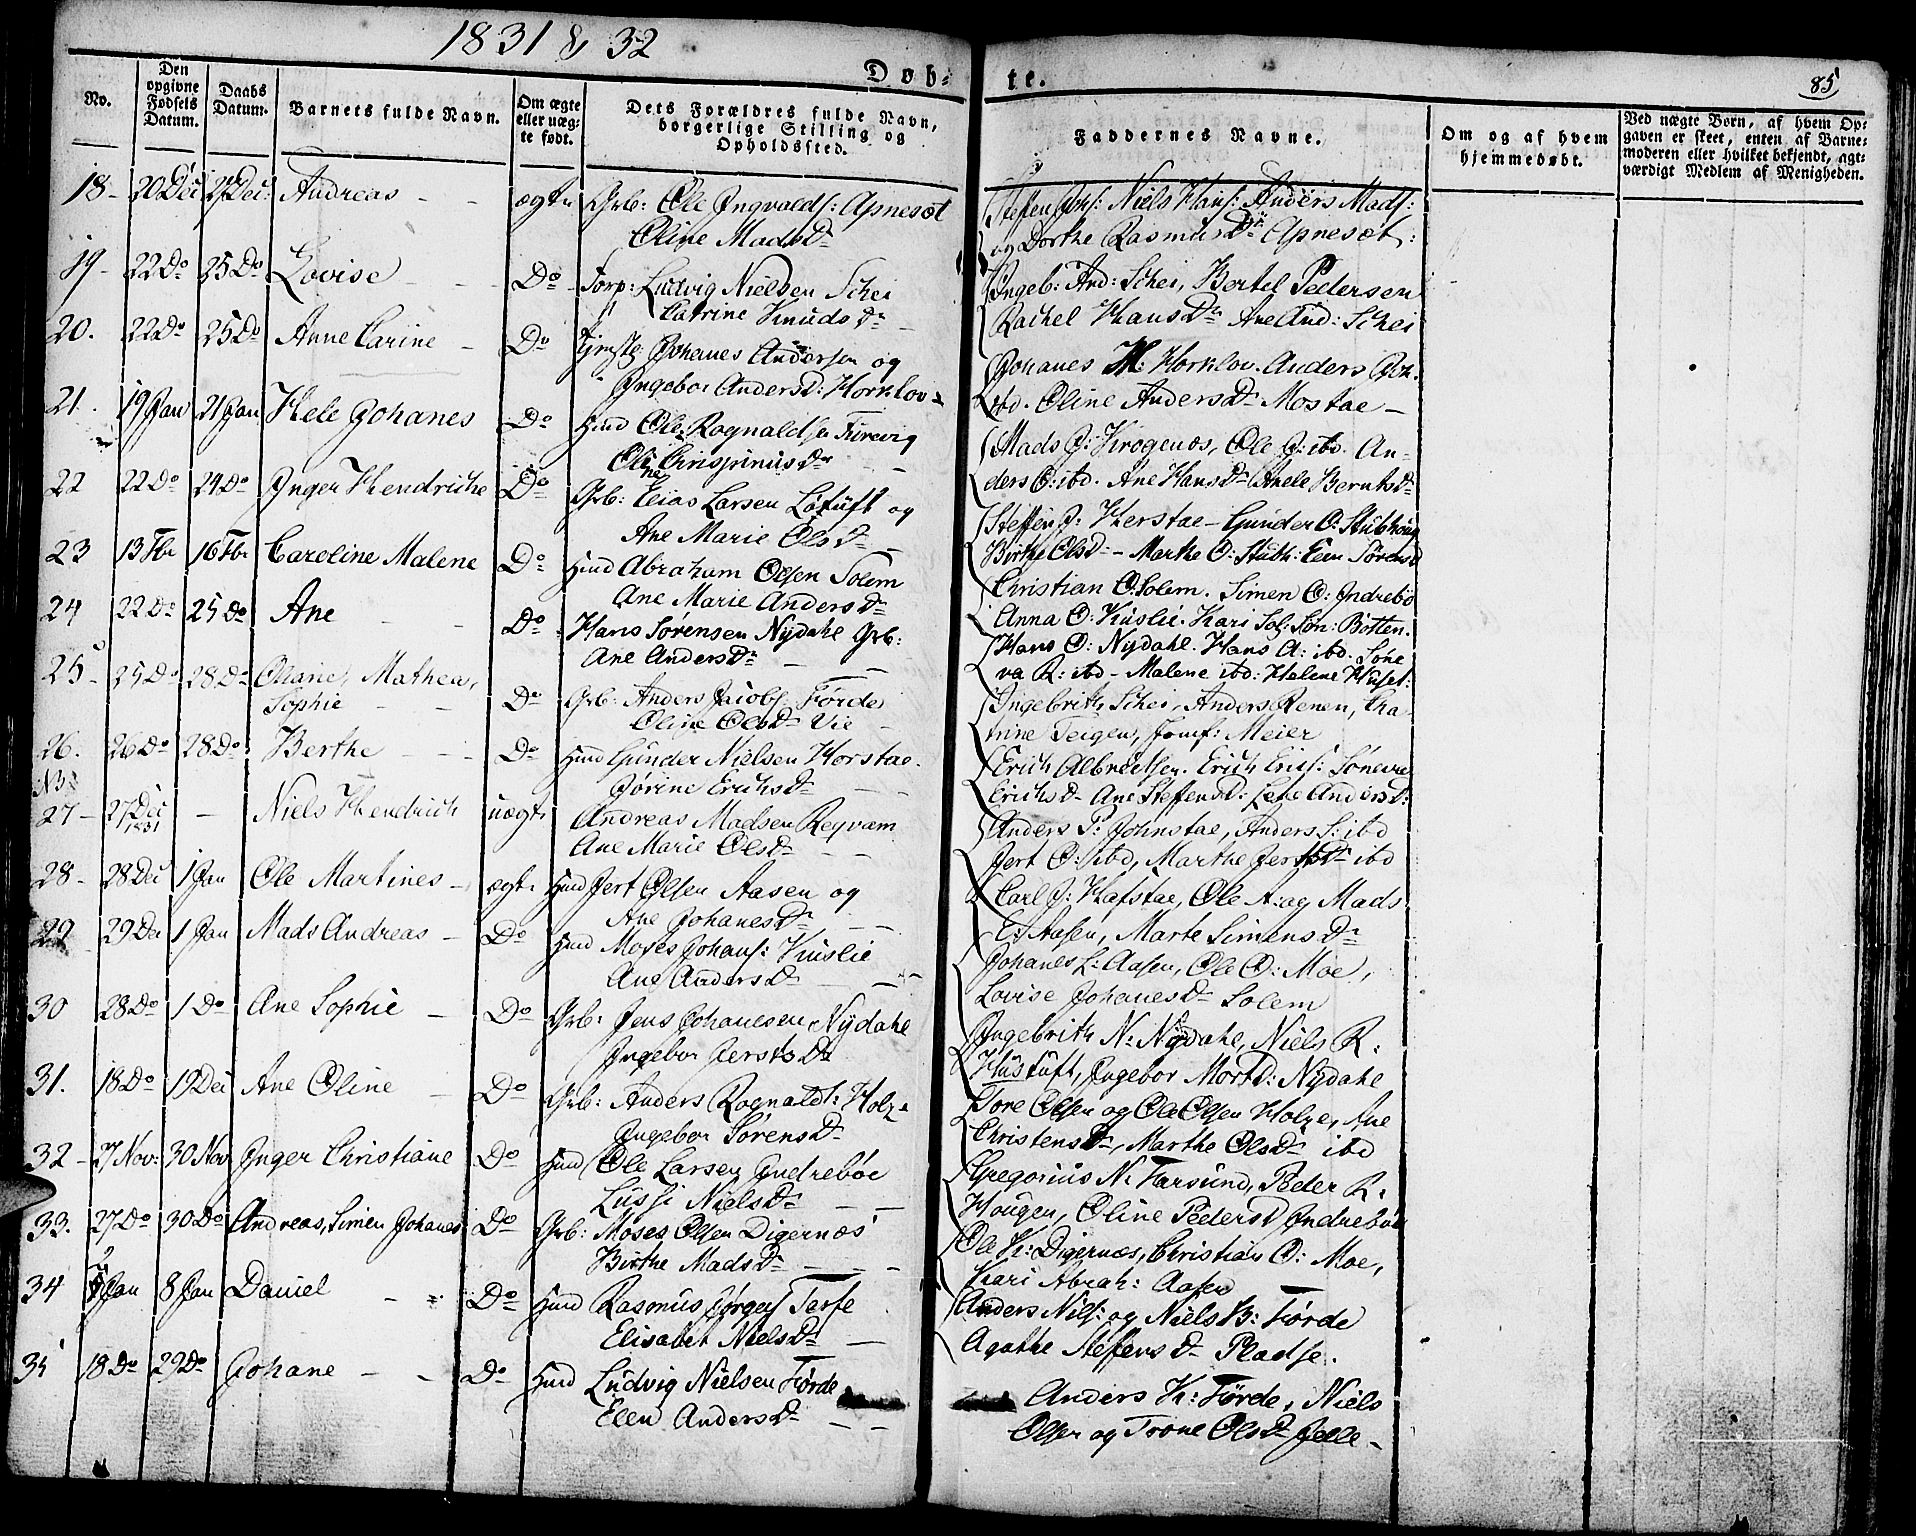 1831 & 32
Døb-
te.
85
No.
Den opgivne Fødsels Datum.
Daabs Datum.
Barnets fulde Navn.
Om ægte eller uæg- te født.
Dets Forældres fulde Navn, borgerlige Stilling og Opholdssted.
Faddernes Navne.
Om og af hvem hjemmedøbt.
Ved uægte Børn, af hvem Op- gaven er skeet, enten af Barne- moderen eller hvilket bekjendt, agt- værdigt Medlem af Menigheden.
18 - 20 Dec 27 Dec: Andreas - - ægte Grb: Ole Ingvalds: Apneset
Oline MadsDr
Steffen Johs: Niels Hans: Anders Mads:
og Dorthe RasmusDr Apneset:
19 - 22 Do 25 Do Lovise - - Do Forp: Ludvig Nielsen Schei
Catrine KnudsDr
Ingeb: And: Schei, Bertel Pedersen
Rachel HansDr Ane And: Schei
20. 22 Do 25 Do Anne Carine - Do Johanes Andersen og
Ingebor AndersD: Horklov -
Johanes M: Horklov. Anders Joh.
ibd. Oline AndersDr Mostae -
21. 19 Jan 21 Jan Hele Johanes Do Huusd Ole Rognaldsen Furevig
Oline CrispinusDr
Mads J: Krogenæs, Ole J: ibd. An-
ders O: ibd. Ane HansDr Anele BerntsDr
22 22 Do 24 Do Inger Hendriche Do Grb: Elias Larsen Løtuft og
Ane Marie OlsDr -
Steffen J. Herstae - Gunder O: Stubhoug
Birthe OlsDr - Marthe O: Stubh: Elen SørensD
23 13 Fbr 16 Fbr Caroline Malene Do Huusd Abraham Olsen Solem
Ane Marie AndersDr
Christian O: Solem. Simen O: Indrebø
Anna O: Kuslie. Kari Sol: Søn: Botten.
24 22 Do 25 Do Ane - - Do Hans Sørensen Nydahl Grb:
Ane AndersDr - -
Hans O: Nydahl. Hans A: ibd. Søne
va R: ibd - Malene ibd: Halene Huset:
25 - 25 Do 28 Do Oliane, Mathea,
Sophie - - Do Grb: Anders Jacobs. Førde
Oline OlsDr Vie -
Ingebrith Schei, Anders Renen, Cha-
trine Teigen, Jomf: Meier
26. 26 Do 28 Do Berthe - - Do Huusd Gunder Nielsen Horstad.
Jorine ErichsDr - -
Erich Albrectsen. Erich Erics: Søneva
ErichsDr Ane SteffensD: Lene AndersD:
NB
27 - 27 Dec 1831 - Niels Hendrich uægte Andreas Madsen Reqvam
Ane Marie OlsDr - -
Anders P: Johnstae, Anders S: ibd
Jert O: ibd, Marthe JertsDr ibd
28 - 28 Dec 1 Jan Ole Martines - ægte Huusd Jert Olsen Aasen og
Ane JohanesDr - -
Carl J: Hafstae, Ole A: og Mads
E: Aasen, Marte SimensDr
29 29 Dec 1 Jan Mads Andreas - Do Huusd Moses Johans: Kuslie
Ane AndersDr - -
Johanes L: Aasen, Ole O: Moe,
Lovise JohanesDr Solem
30 28 Do 1 Do Ane Sophie - Do Grb: Jens Johanesen Nydahl
Ingebor JertsDr
Ingebrith N: Nydahl, Niels R:
Hustuft, Ingebor MortD: Nydahl
31. 18 Do 19 Dec Ane Oline - Do Grb: Anders Rognalds: Holze
Ingebor SørensDr
Tore Olsen og Ole Olsen Holze, Ane
ChristensDr, Marthe OlsDr ibd
32 - 27 Nov: 30 Nov Inger Christiane Do Huusd Ole Larsen Indrebøe
Lussi NielsDr - -
Gregorius N: Farsund, Peder R:
Hougen, Oline PedersD Indrebøe
33. 27 Do 30 Do Andreas, Simen Johanes Do Grb: Moses Olsen Digernæs
Birthe MadsDr - - -
Ole K: Digernæs, Christian O: Moe,
Kari Abrah: Aasen
34 Jan 8 Jan Daniel - - Do Huusd Rasmus Jørgens Terfe
Elisabet NielsDr -
Anders Nils: og Niels B: Førde
Agathe SteffensDr Pladse.
35 18 Do 29 Do Johane - - Do Huusd Ludvig Nielsen Førde
Elen AndersDr - -
Anders K: Førde, Niels
Olsen og Trone OlsDr Jelle -